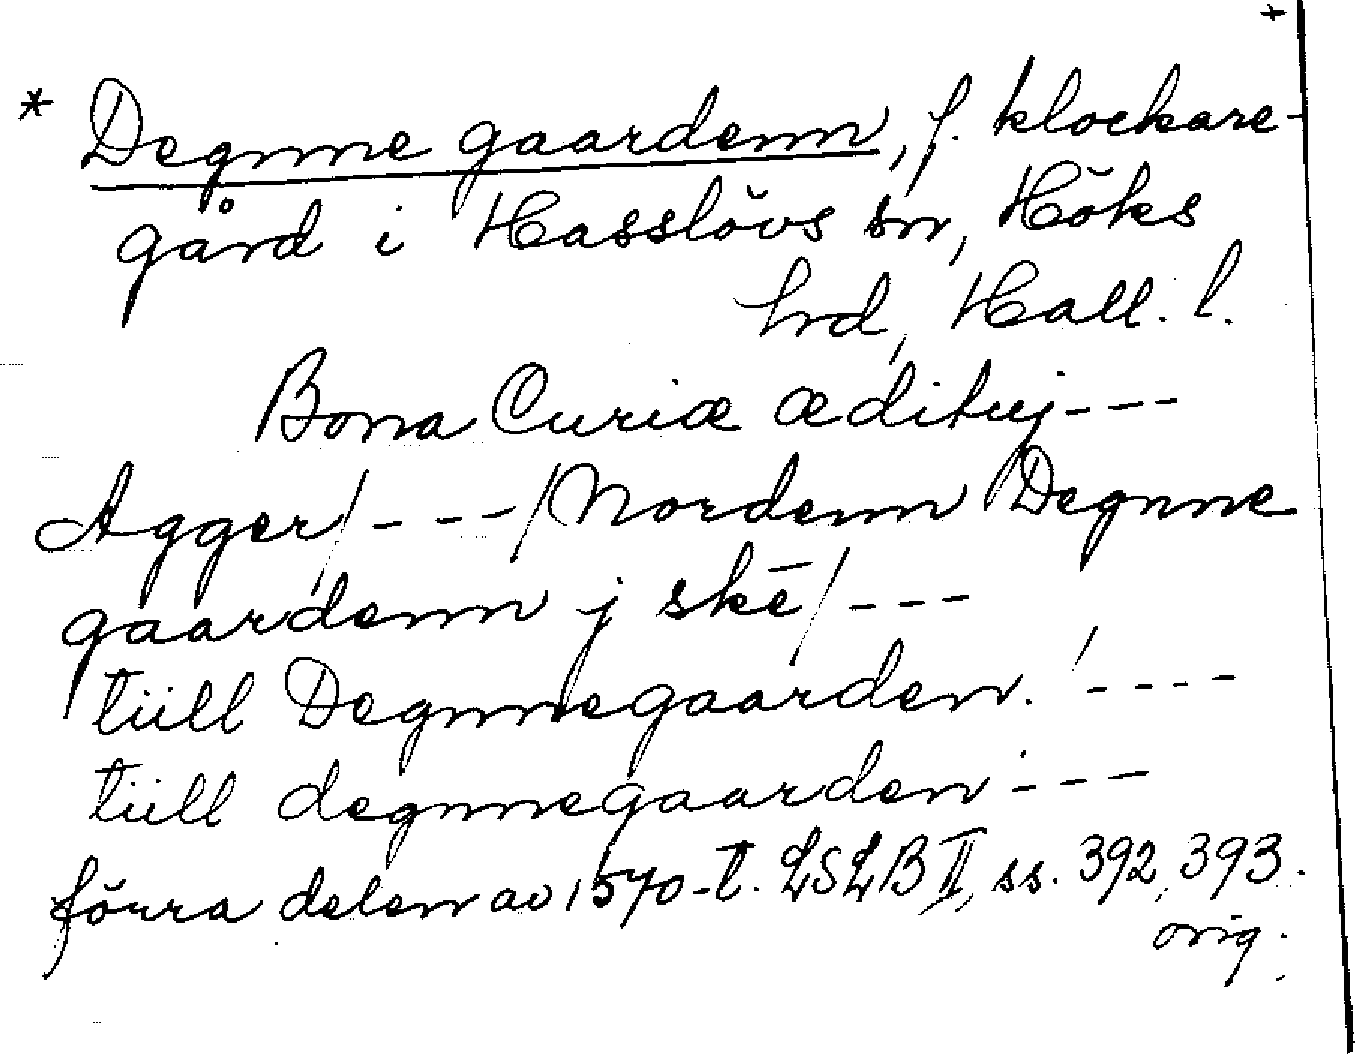 +
* Degnne gaardenn, f. klockare-
gård i Hasslövs sn, Höks
hrd, Hall. l.
Bona Curiæ æditiuj - - -
Agger / - - - / Nordenn Degnne
gaardenn j skē / - - -
tüll Degnnegaarden. / - - - -
tüll degnnegaarden - - -
förra delen av 1570-t. LSLB II, ss. 392, 393.
orig.